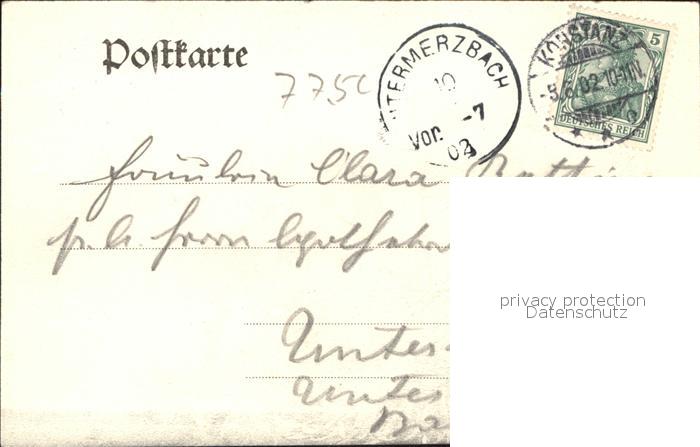 Postkarte
5
DEUTSCHES REICH
KONSTANZ
-5.6.02.10-11N.
UNTERMERZBACH
10
Vor. -7
02
775
Fräulein Clara
p. A. Herrn Apotheker
Unter-
Unter
Ba
privacy protection
Datenschutz